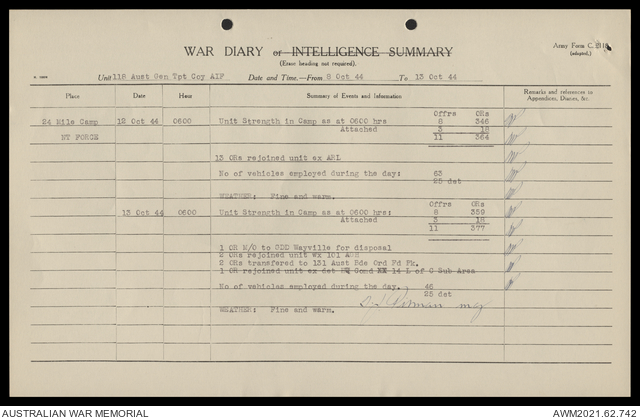 WAR DIARY or INTELLIGENCE SUMMARY
Army Form C.
(adapted.)
(Erase heading not required).
Unit 118 Aust Gen Tpt Coy AIF Date and Time.—From 8 Oct 44 To 13 Oct 44
Place Date Hour Summary of Events and Information Remarks and references to
Appendices, Diaries, &c.
Offrs ORs
24 Mile Camp 12 Oct 44 0600 Unit Strength in Camp as at 0600 hrs 8 346
Attached 3 18
NT FORCE 11 364
13 ORs rejoined unit ex ARL
No of vehicles employed during the day: 63
25 det
WEATHER: Fine and warm.
Offrs ORs
13 Oct 44 0600 Unit Strength in Camp as at 0600 hrs: 8 359
Attached 3 18
11 377
1 OR M/O to GDD Wayville for disposal
2 ORs rejoined unit wx 101 AGH
2 ORs transfered to 131 Aust Bde Ord Fd Pk.
1 OR rejoined unit ex det Comd 14 L of C Sub Area
No of vehicles employed during the day. 46
25 det
WEATHER: Fine and warm.
AUSTRALIAN WAR MEMORIAL AWM2021.62.742